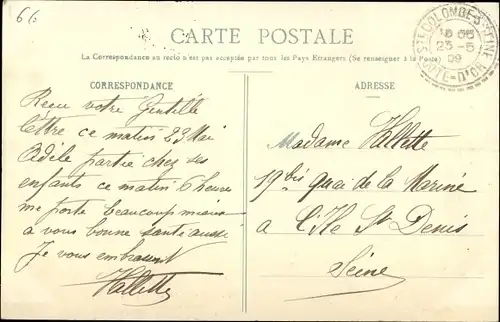 61
CARTE POSTALE
La Correspondance au recto n'est pas acceptée par tous les Pays Etrangers (Se renseigner à la Poste)
CORRESPONDANCE
ADRESSE
STE COLOMBE-S-SEINE
COTE-D'OR
23-5
09
Reçu votre Gentille
lettre ce matin 23 Mai
Adèle partie chez ses
enfants ce matin 6 heures
me porte beaucoup mieux
a vous bonne santé aussi
Je vous embrassent
Hallette
Madame Hallette
19 bis quai de la Marine
a L'Ile St Denis
Seine